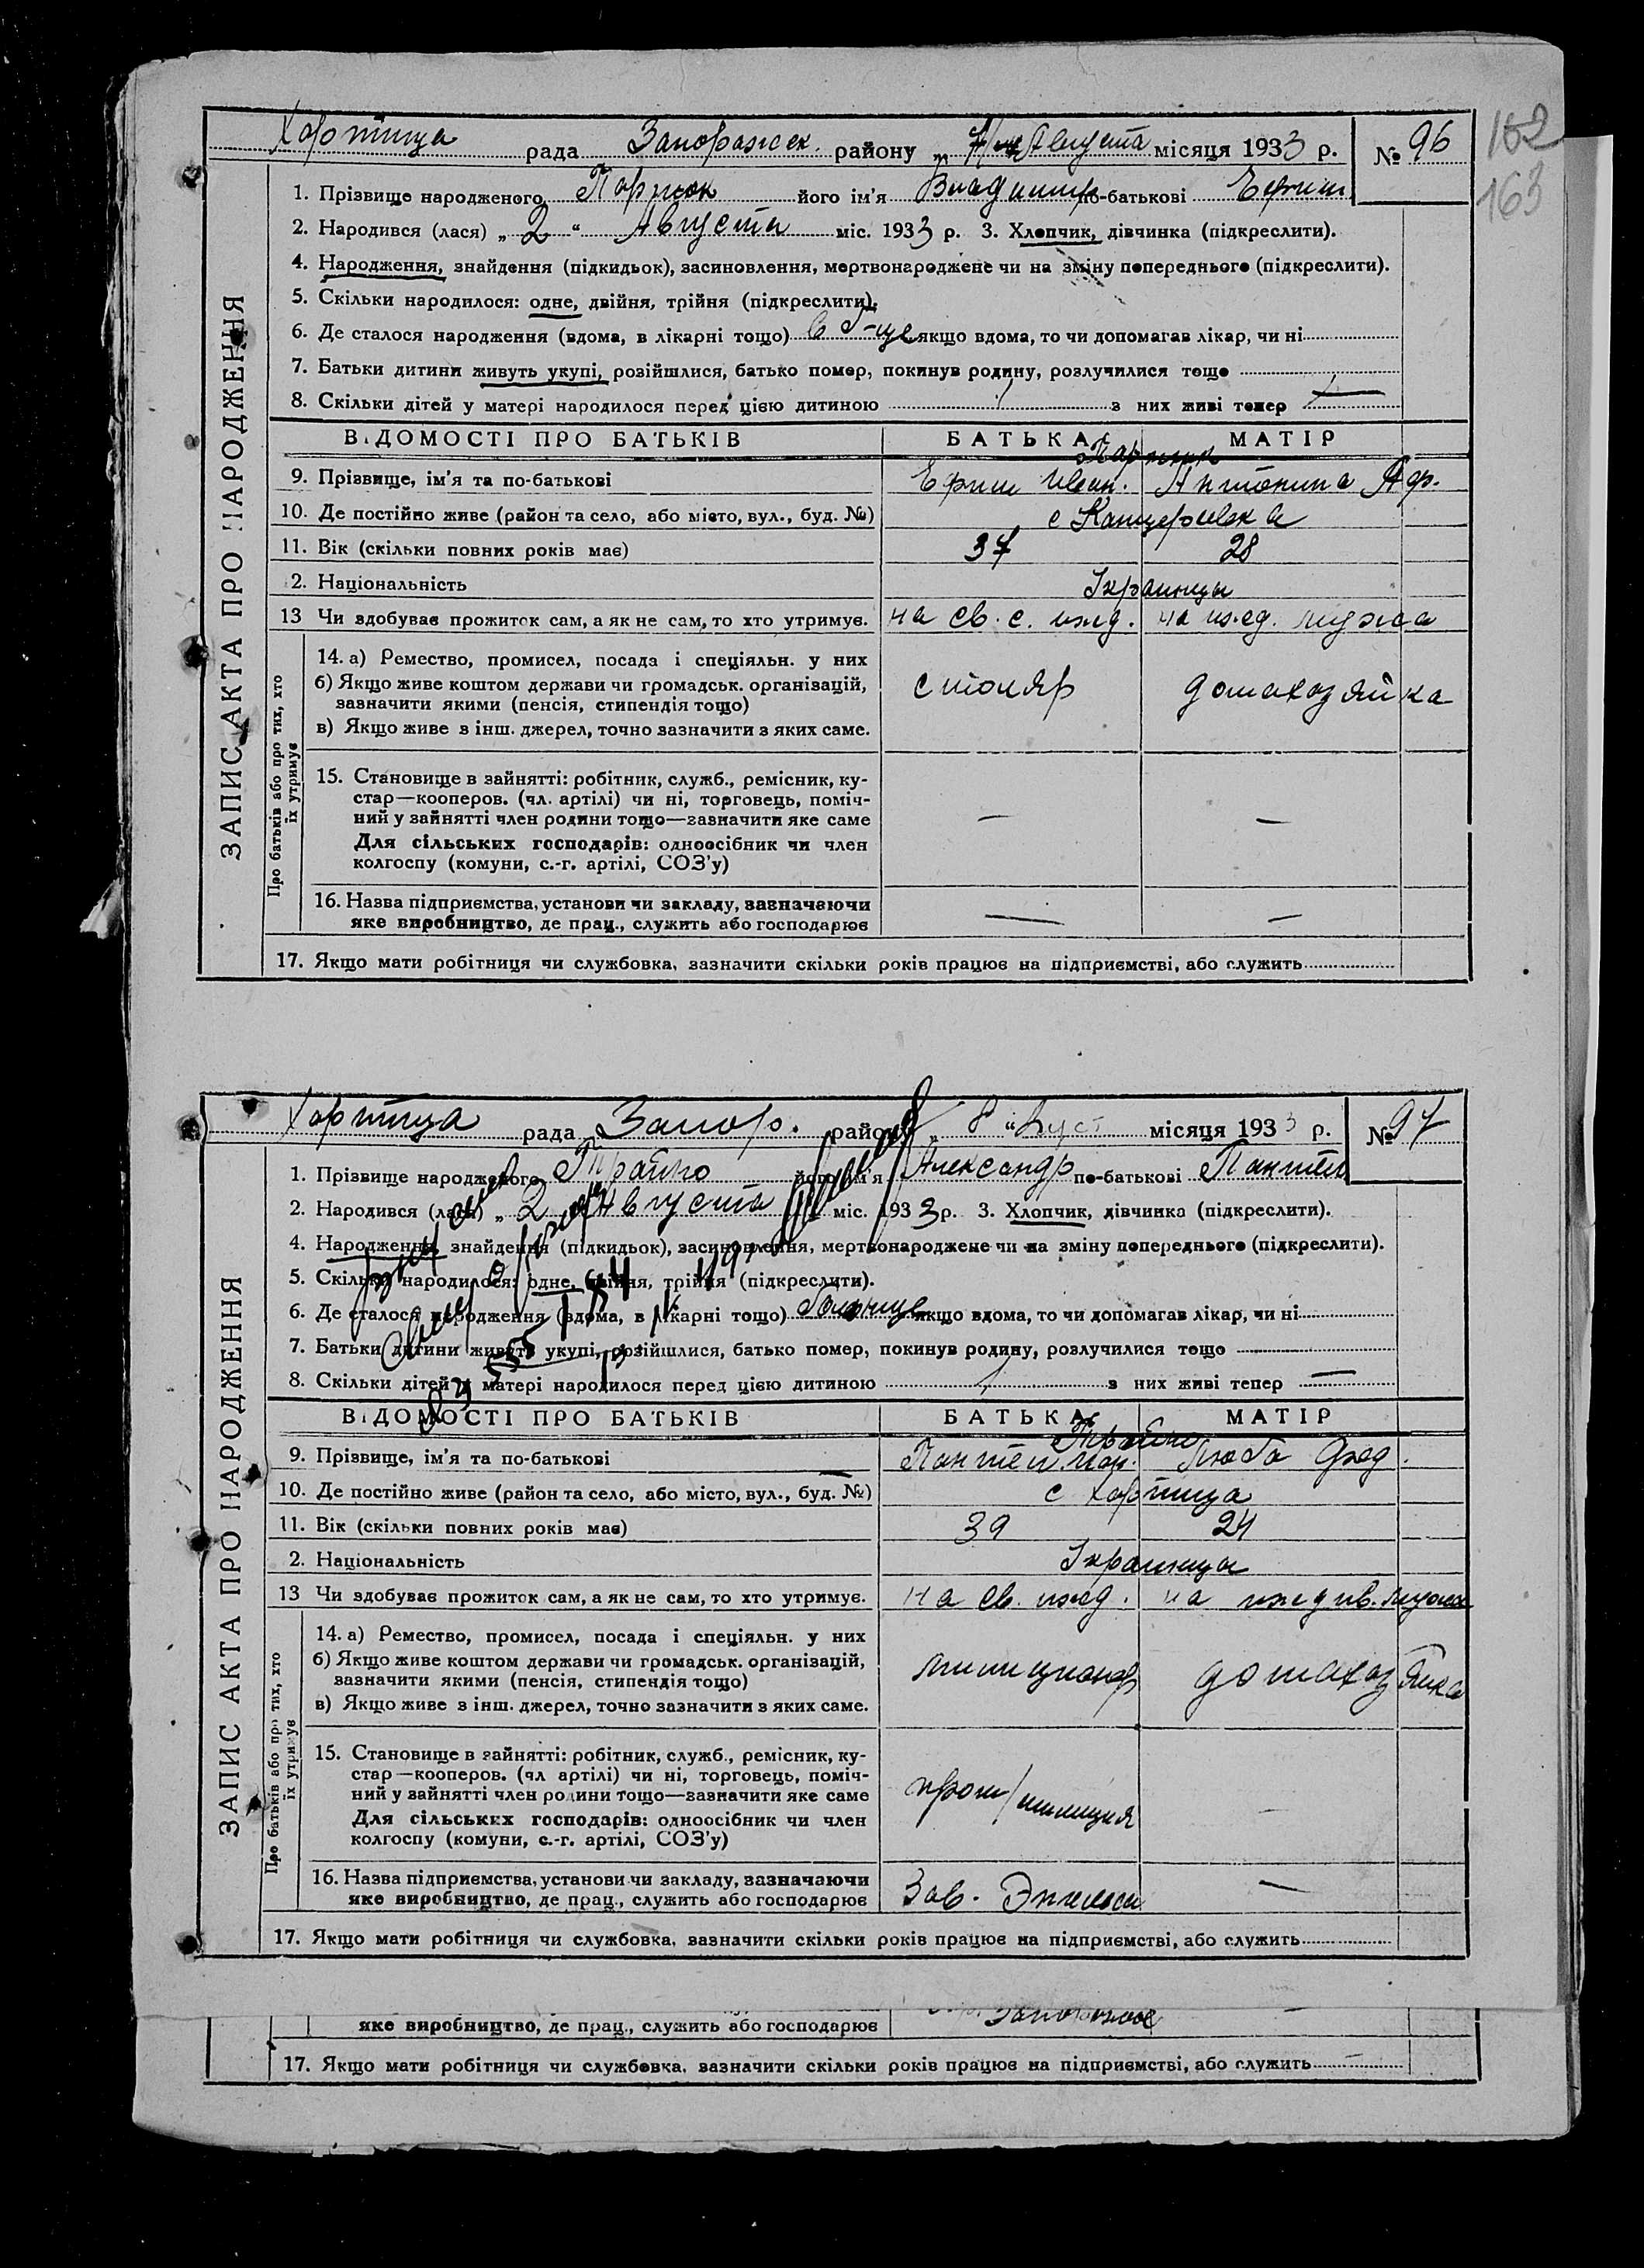 162
163
Хортица рада Запорожск. району „ Августа місяця 1933 р. № 96
1. Прізвище народженого його ім'я Владимир по-батькові Ефим.
2. Народився (лася) „ 2 “ Августа міс. 1933 р. 3. Хлопчик, дівчинка (підкреслити).
4. Народження, знайдення (підкидьок), засиновлення, мертвонароджене чи на зміну попереднього (підкреслити).
5. Скільки народилося: одне, двійня, трійня (підкреслити).
6. Де сталося народження (вдома, в лікарні тощо) в б-це якщо вдома, то чи допомагав лікар, чи ні
7. Батьки дитини живуть укупі, розійшлися, батько помер, покинув родину, розлучилися тощо
8. Скільки дітей у матері народилося перед цією дитиною 1 з них живі тепер —
ВІДОМОСТІ ПРО БАТЬКІВ БАТЬКА МАТІР
9. Прізвище, ім'я та по-батькові Ефим Иван. Антонина Аф.
10. Де постійно живе (район та село, або місто, вул., буд. №) с Канцеровка
11. Вік (скільки повних років має) 37 28
2. Національність Украинцы
13 Чи здобуває прожиток сам, а як не сам, то хто утримує. на св. с. ижд. на ижд. мужа
ЗАПИС АКТА ПРО НАРОДЖЕННЯ
Про батьків або про тих, хто їх утримує
14. а) Ремество, промисел, посада і спеціяльн. у них
б) Якщо живе коштом держави чи громадськ. організацій,
зазначити якими (пенсія, стипендія тощо)
столяр домахозяйка
в) Якщо живе з інш. джерел, точно зазначити з яких саме.
15. Становище в зайнятті: робітник, служб., ремісник, ку-
стар—кооперов. (чл. артілі) чи ні, торговець, поміч-
ний у зайнятті член родини тощо—зазначити яке саме — —
Для сільських господарів: одноосібник чи член
колгоспу (комуни, с.-г. артілі, СОЗ'у)
16. Назва підприємства, установи чи закладу, зазначаючи
яке виробництво, де прац., служить або господарює — —
17. Якщо мати робітниця чи службовка, зазначити скільки років працює на підприємстві, або служить
Хортица рада Запор. району „ 8 “ місяця 1933 р. № 97
1. Прізвище народженого його ім'я Александр по-батькові Пантел
2. Народився (лася) „ 2 “ Августа міс. 1933 р. 3. Хлопчик, дівчинка (підкреслити).
4. Народження, знайдення (підкидьок), засиновлення, мертвонароджене чи на зміну попереднього (підкреслити).
5. Скільки народилося: одне, двійня, трійня (підкреслити).
6. Де сталося народження (вдома, в лікарні тощо) больнице якщо вдома, то чи допомагав лікар, чи ні
7. Батьки дитини живуть укупі, розійшлися, батько помер, покинув родину, розлучилися тощо
8. Скільки дітей у матері народилося перед цією дитиною 1 з них живі тепер —
ВІДОМОСТІ ПРО БАТЬКІВ БАТЬКА МАТІР
9. Прізвище, ім'я та по-батькові Пантел Люба Фед.
10. Де постійно живе (район та село, або місто, вул., буд. №) с Хортица
11. Вік (скільки повних років має) 39 24
2. Національність Украинцы
13 Чи здобуває прожиток сам, а як не сам, то хто утримує. на св. ижд. на иждив. мужа
ЗАПИС АКТА ПРО НАРОДЖЕННЯ
Про батьків або про тих, хто їх утримує
14. а) Ремество, промисел, посада і спеціяльн. у них
б) Якщо живе коштом держави чи громадськ. організацій,
зазначити якими (пенсія, стипендія тощо)
милиционер домахозяйка
в) Якщо живе з інш. джерел, точно зазначити з яких саме.
15. Становище в зайнятті: робітник, служб., ремісник, ку-
стар—кооперов. (чл артілі) чи ні, торговець, поміч-
ний у зайнятті член родини тощо—зазначити яке саме
пром/милиция —
Для сільських господарів: одноосібник чи член
колгоспу (комуни, с.-г. артілі, СОЗ'у)
16. Назва підприємства, установи чи закладу, зазначаючи
яке виробництво, де прац., служить або господарює Зав. Энгельса —
17. Якщо мати робітниця чи службовка, зазначити скільки років працює на підприємстві, або служить
яке виробництво, де прац., служить або господарює —
17. Якщо мати робітниця чи службовка, зазначити скільки років працює на підприємстві, або служить